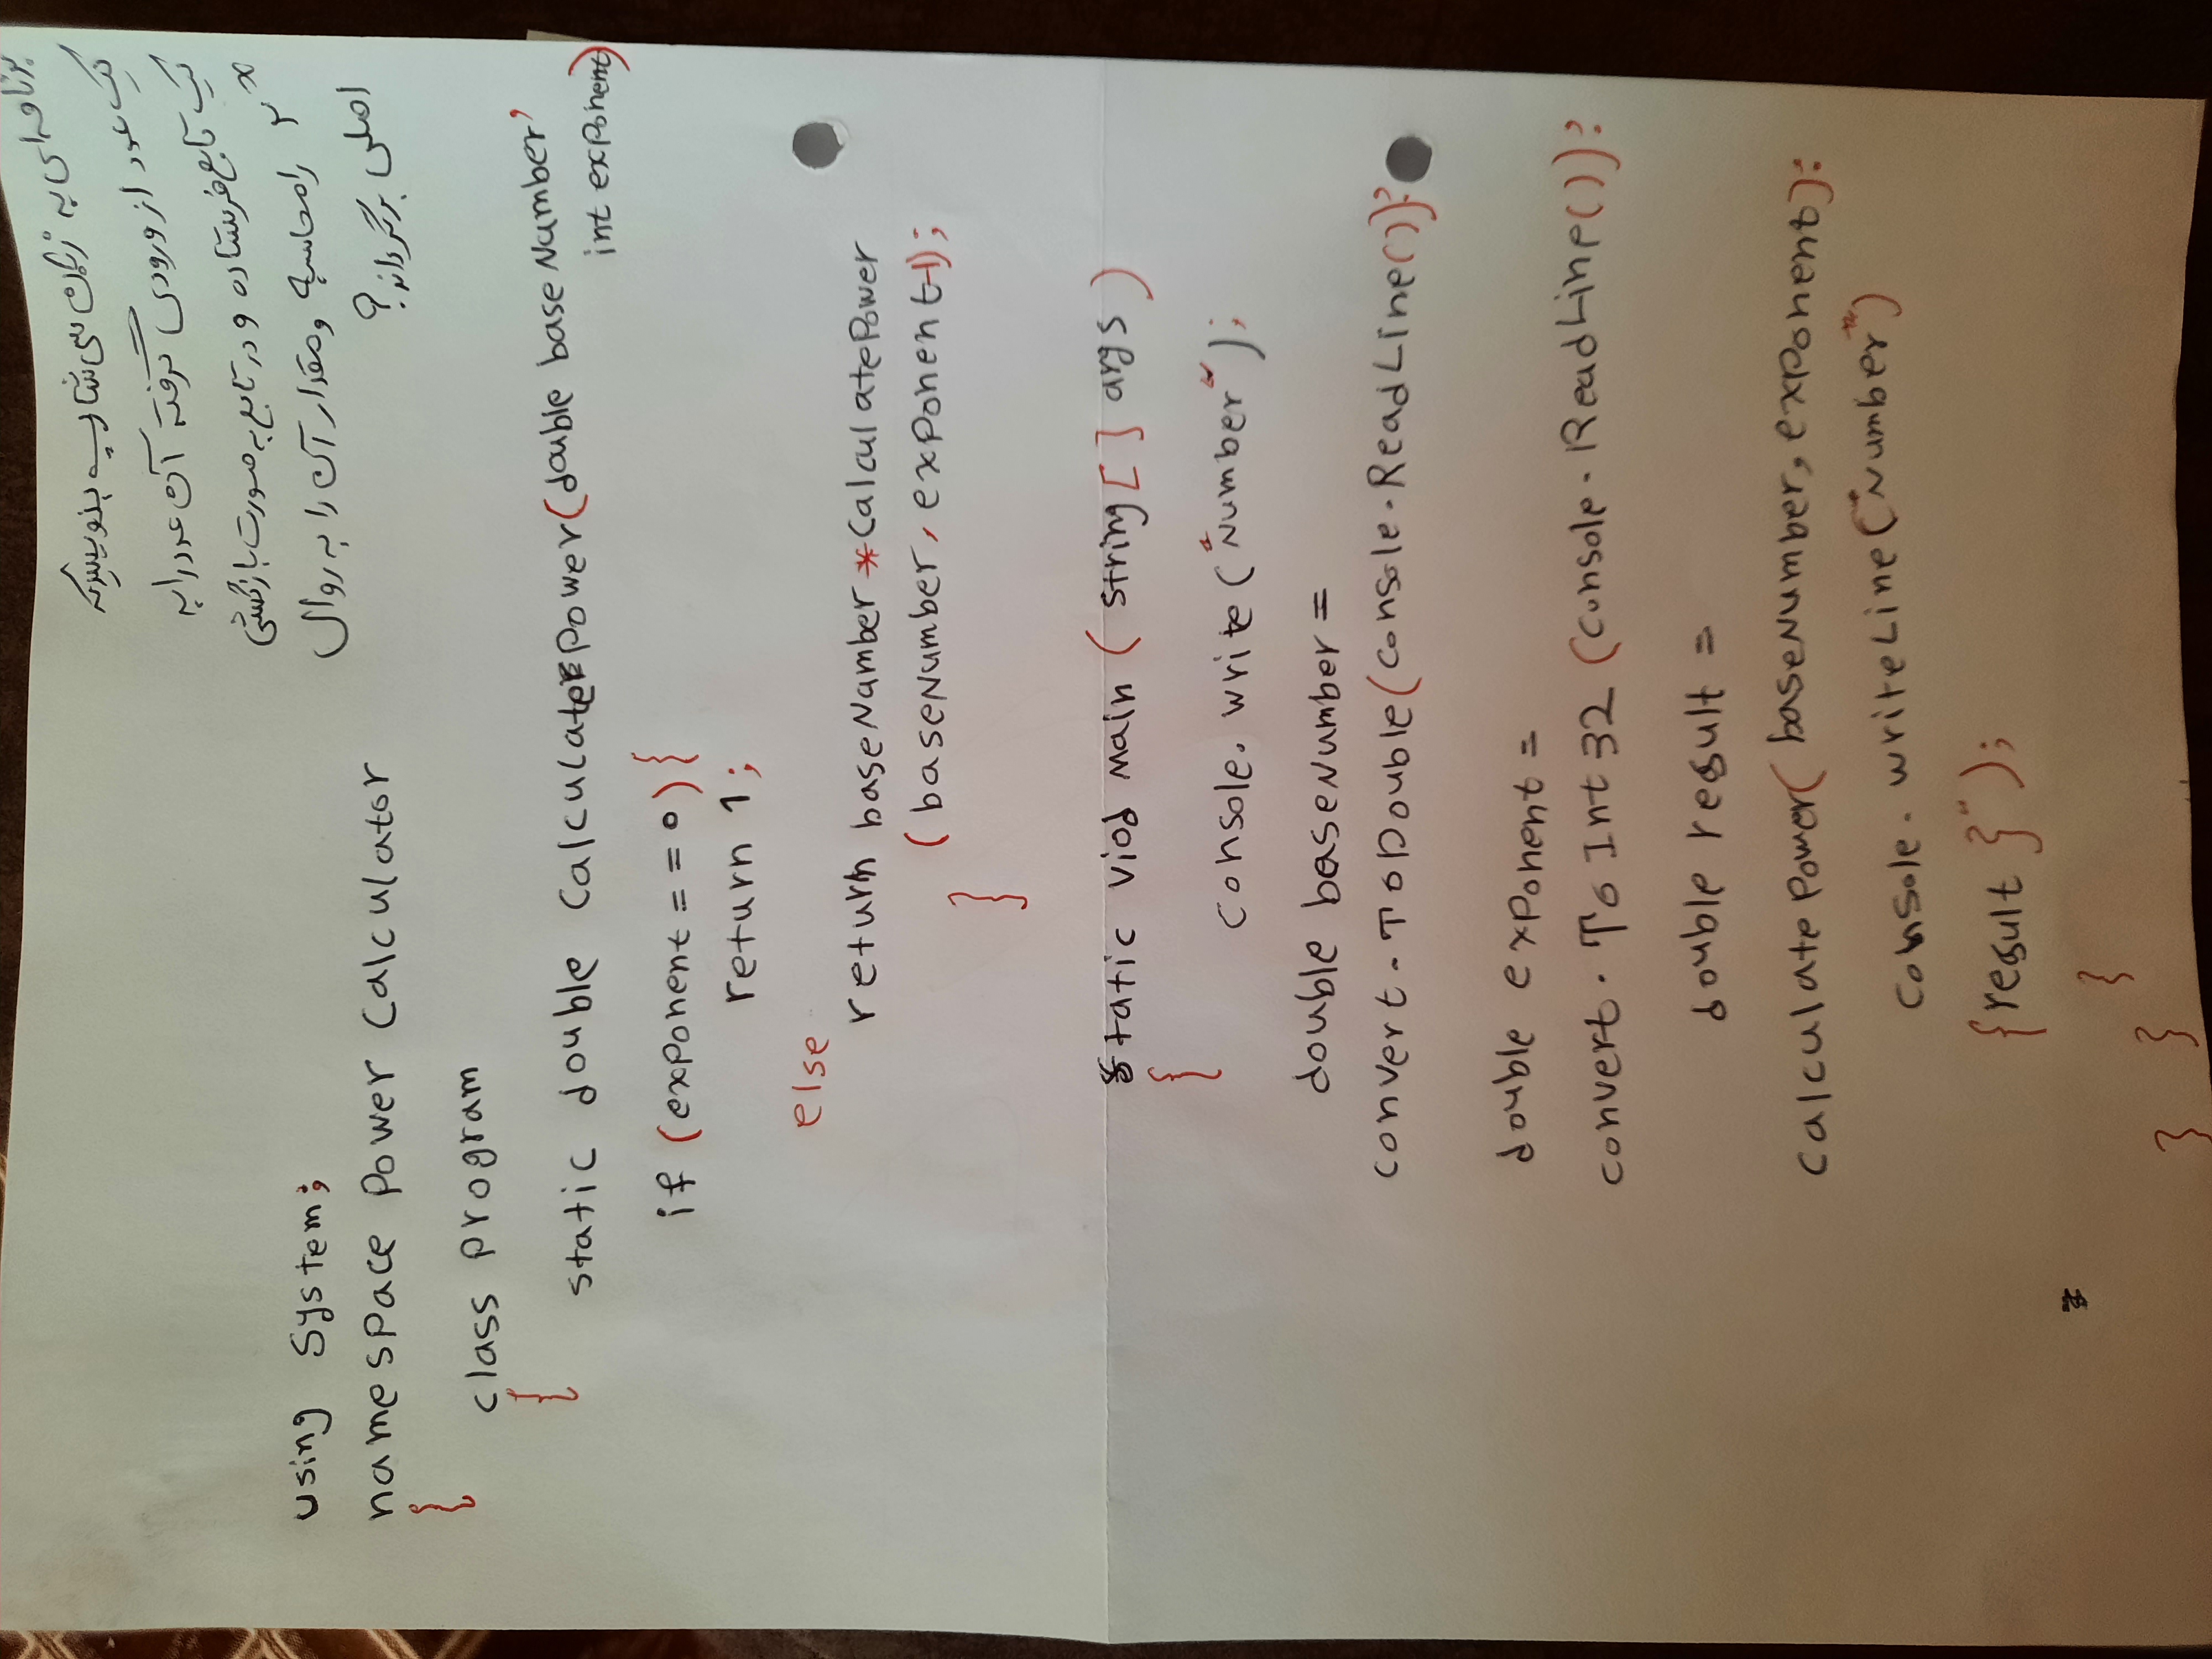 برنامه‌ای به زبان سی شارپ بنویسید که
یک عدد از ورودی گرفته آن عدد را به
یک تابع فرستاده و در تابع به صورت بازگشتی
۲ˣ را محاسبه و مقدار آن را به روال
اصلی برگرداند؟
using System;
namespace Power Calculator
{
class program
{
static double CalculatePower(double baseNumber,
int exponent)
if (exponent == 0){
return 1;
else
return baseNumber *CalculatePower
(baseNumber, exponent-1);
}
static viod main (string[] args)
{
console. write ("Number");
double baseNumber =
convert. ToDouble(console.ReadLine());
double exponent =
convert. To Int 32 (console. ReadLine()):
double result =
calculatePower( baseNumber, exponent):
console. writeLine("Number")
{result }");
}
}
}